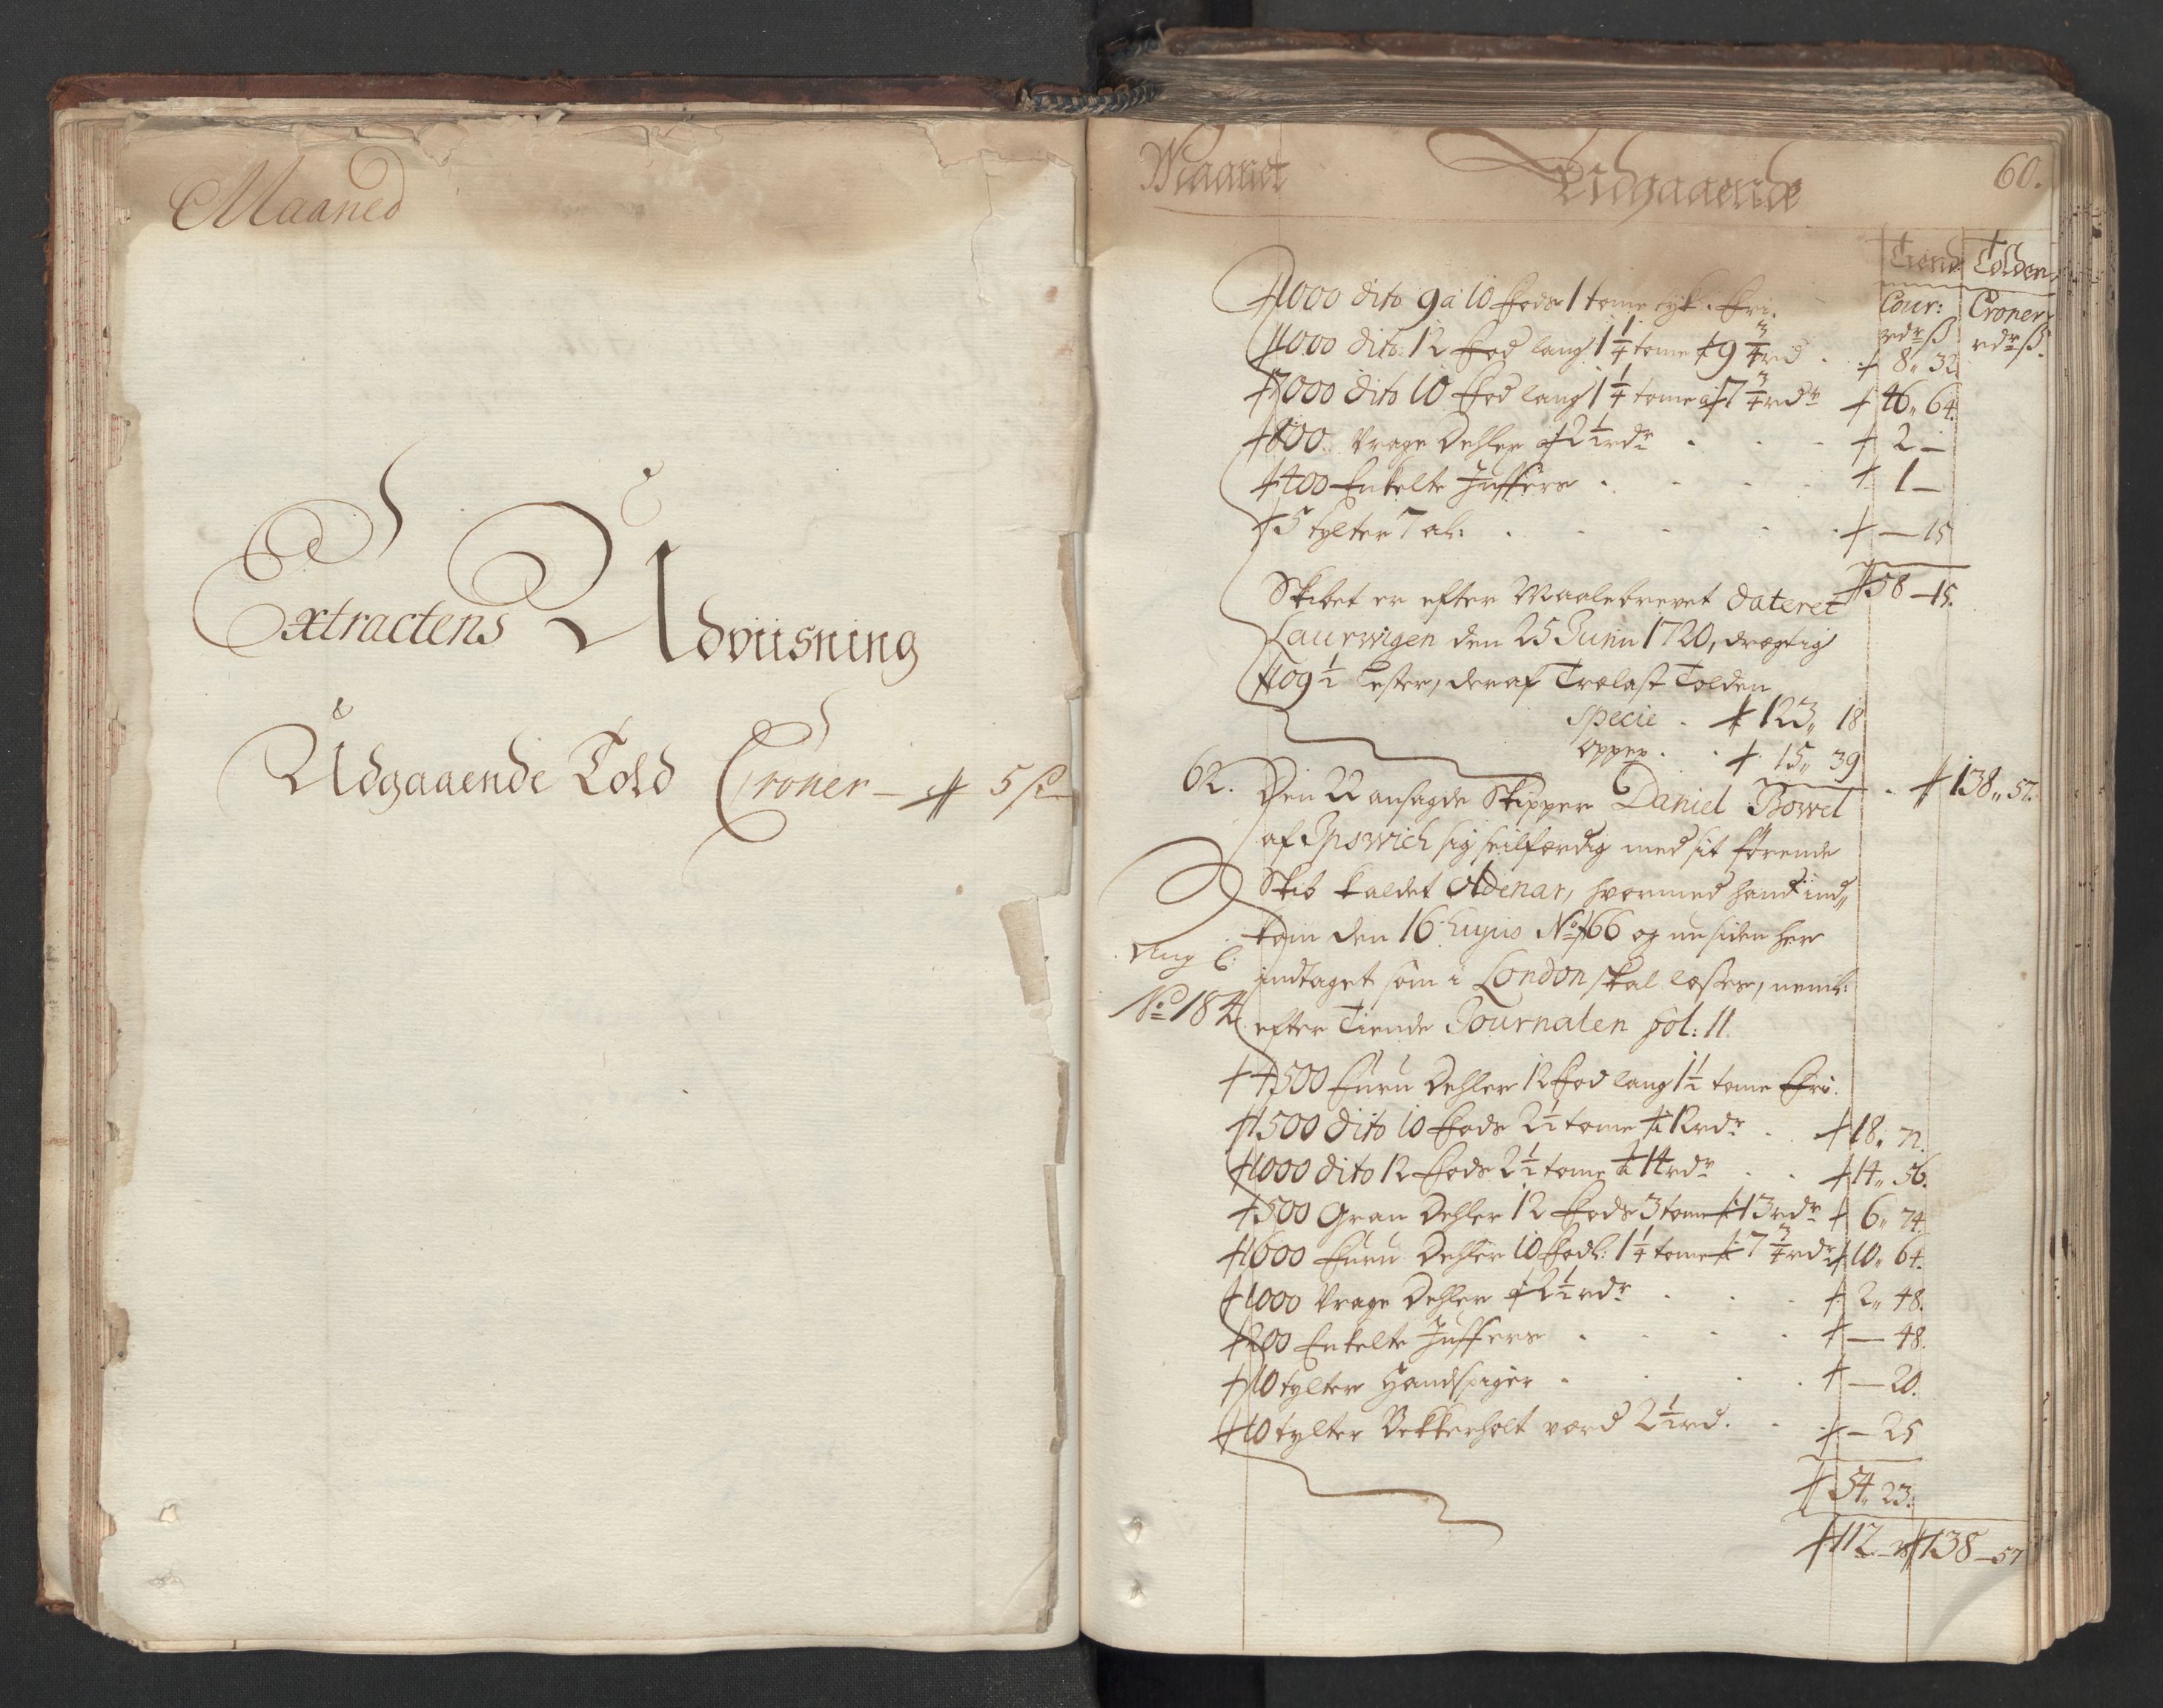 Maaned
Extractens Udviisning
Udgaaende Told Croner – 5 ß
Maanet Udgaaende 60.
Tiend Tolden
Cour: Croner
rdr ß rdr ß.
1000 dito 9 a 10 Fods 1 tome tyk. Fri.
1000 dito: 12 Fod lang 1 1/4 tome a 9 3/4 rd . 8„ 32
7000 dito 10 Fod lang 1 1/4 tome a 7 3/4 rdr 46„ 64.
800. Vrage Dehler a 2 1/2 rdr . . . 2 —
400 Enkelte Juffers . . . . 1 —
5 tylter 7 al: . . . . — 15
58 — 15.
Skibet er efter Maalebrevet dateret
Laurwigen den 25 Junii 1720, drægtig
109 1/2 Lester, deraf Trælast Tolden
Specie . 123„ 18
opper . . 15„ 39
. 138„ 57.
62. Den 22 ansagde Skipper Daniel Bowel
af Ipswich sig seilfærdig med sit førende
Skib kaldet Adenar, hvormed hand ind„
kom den 16 hujus No 166 og nu siden her
indtaget som i London skal losses, neml:
No 184 efter Tiende Journalen fol: 11.
4500 Furu Dehler 12 Fod lang 1 1/2 tome Fri.
1500 dito 10 Fods 2 1/2 tome a 12 rdr . 18„ 72.
1000 dito 12 Fods 2 1/2 tome a 14 rdr . . 14„ 56.
500 Gran Dehler 12 Fods 3 tome a 13 rdr 6„ 74
1600 Furu Dehler 10 Fodl: 1 1/4 tome a 7 3/4 rdr 10„ 64.
1000 Vrage Dehler a 2 1/2 rdr . . . 2„ 48.
200 Enkelte Juffers . . . . — 48.
10 tylter Handspiger . . . . — 20.
10 tylter Bekkerholt værd 2 1/2 rd. . — 25
54„ 23.
112 138 — 57